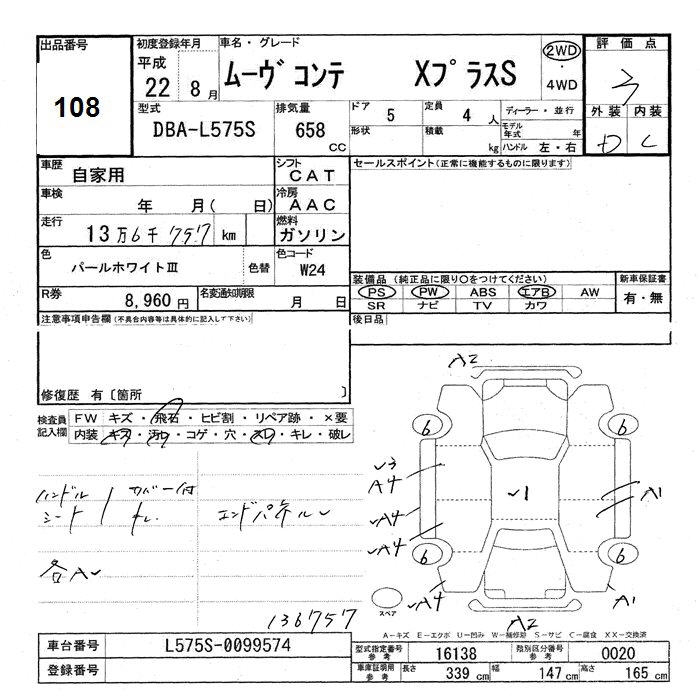 出品番号
108
初度登録年月
平成
22 8月
車名・グレード
ムーヴ コンテ XプラスS
2WD
・
4WD
評価点
3
外装 内装
D C
型式
DBA-L575S
排気量
658
CC
ドア 5
定員 4 人
ディーラー・並行
形状
積載 kg
モデル年式 年
ハンドル 左・右
車歴
自家用
シフト
CAT
セールスポイント(正常に機能するものに限ります)
車検
年 月( 日)
冷房
AAC
走行
13万6千757 km
燃料
ガソリン
色
パールホワイトⅢ
色替
色コード
W24
装備品 (純正品に限り○をつけてください)
PS PW ABS エアB AW
SR ナビ TV カワ
新車保証書
有・無
R券
8,960円
名変通知期限
月 日
注意事項申告欄(不具合内容等は具体的に記入して下さい)
後日品
修復歴 有〔箇所 〕
検査員記入欄
FW キズ・飛石・ヒビ割・リペア跡・×要
内装 キズ・汚レ・コゲ・穴・スレ・キレ・破レ
ハンドル / カバー付
シート
エンドパネル✓
各A✓
136757
A2
6 6
✓3
A4
✓A4
✓A4
✓1
A1
6 6
✓A4
A1
A2
スペア
A-キズ E-エクボ U-凹み W-補修跡 S-サビ C-腐食 XX-交換済
車台番号 L575S-0099574
登録番号
型式指定番号 参考 16138
類別区分番号 参考 0020
車庫証明用 参考 長さ 339 cm 幅 147 cm 高さ 165 cm